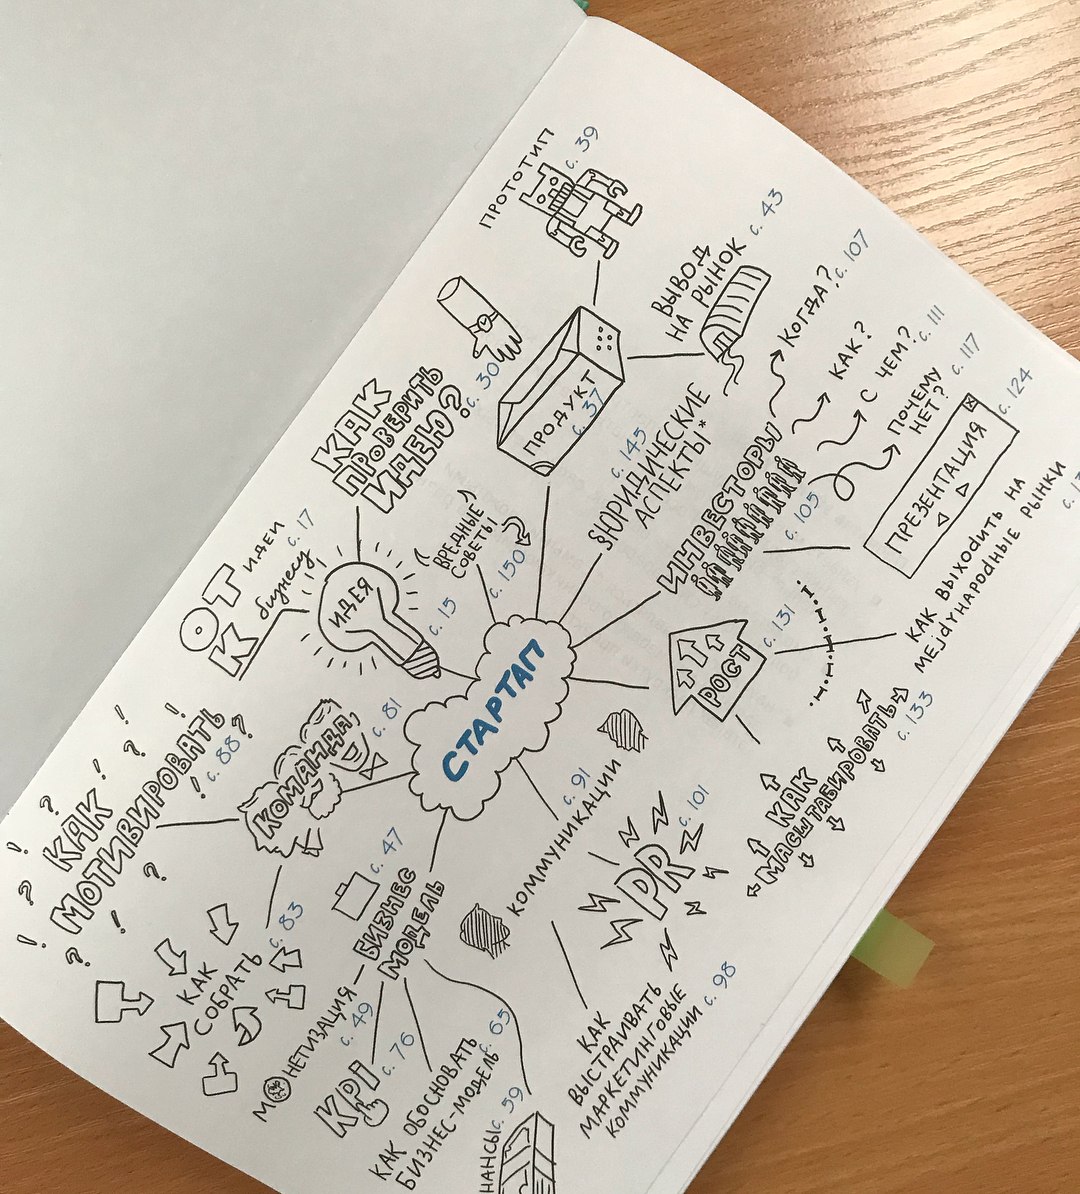 ПРОТОТИП
с. 39
ВЫВОД
НА РЫНОК
с. 43
ПРОДУКТ
с. 37
КАК
ПРОВЕРИТЬ
ИДЕЮ?
с. 30
§ЮРИДИЧЕСКИЕ
АСПЕКТЫ*
с. 145
ИНВЕСТОРЫ
с. 105
КОГДА?
с. 107
КАК?
С ЧЕМ?
с. 111
ПОЧЕМУ
НЕТ?
с. 117
ПРЕЗЕНТАЦИЯ
с. 124
ВРЕДНЫЕ
СОВЕТЫ
с. 150
ОТ ИДЕИ
К бизнесу
с. 17
ИДЕЯ
с. 15
СТАРТАП
РОСТ
с. 131
КАК ВЫХОДИТЬ НА
МЕЖДУНАРОДНЫЕ РЫНКИ
КАК
МАСШТАБИРОВАТЬ
с. 133
КОМАНДА
с. 81
КАК
МОТИВИРОВАТЬ
с. 88
КАК
СОБРАТЬ
с. 83
БИЗНЕС
МОДЕЛЬ
с. 47
МОНЕТИЗАЦИЯ
с. 49
KPI
с. 76
КАК ОБОСНОВАТЬ
БИЗНЕС-МОДЕЛЬ
с. 65
НАНСЫ
с. 59
КОММУНИКАЦИИ
с. 91
PR
с. 101
КАК
ВЫСТРАИВАТЬ
МАРКЕТИНГОВЫЕ
КОММУНИКАЦИИ
с. 98